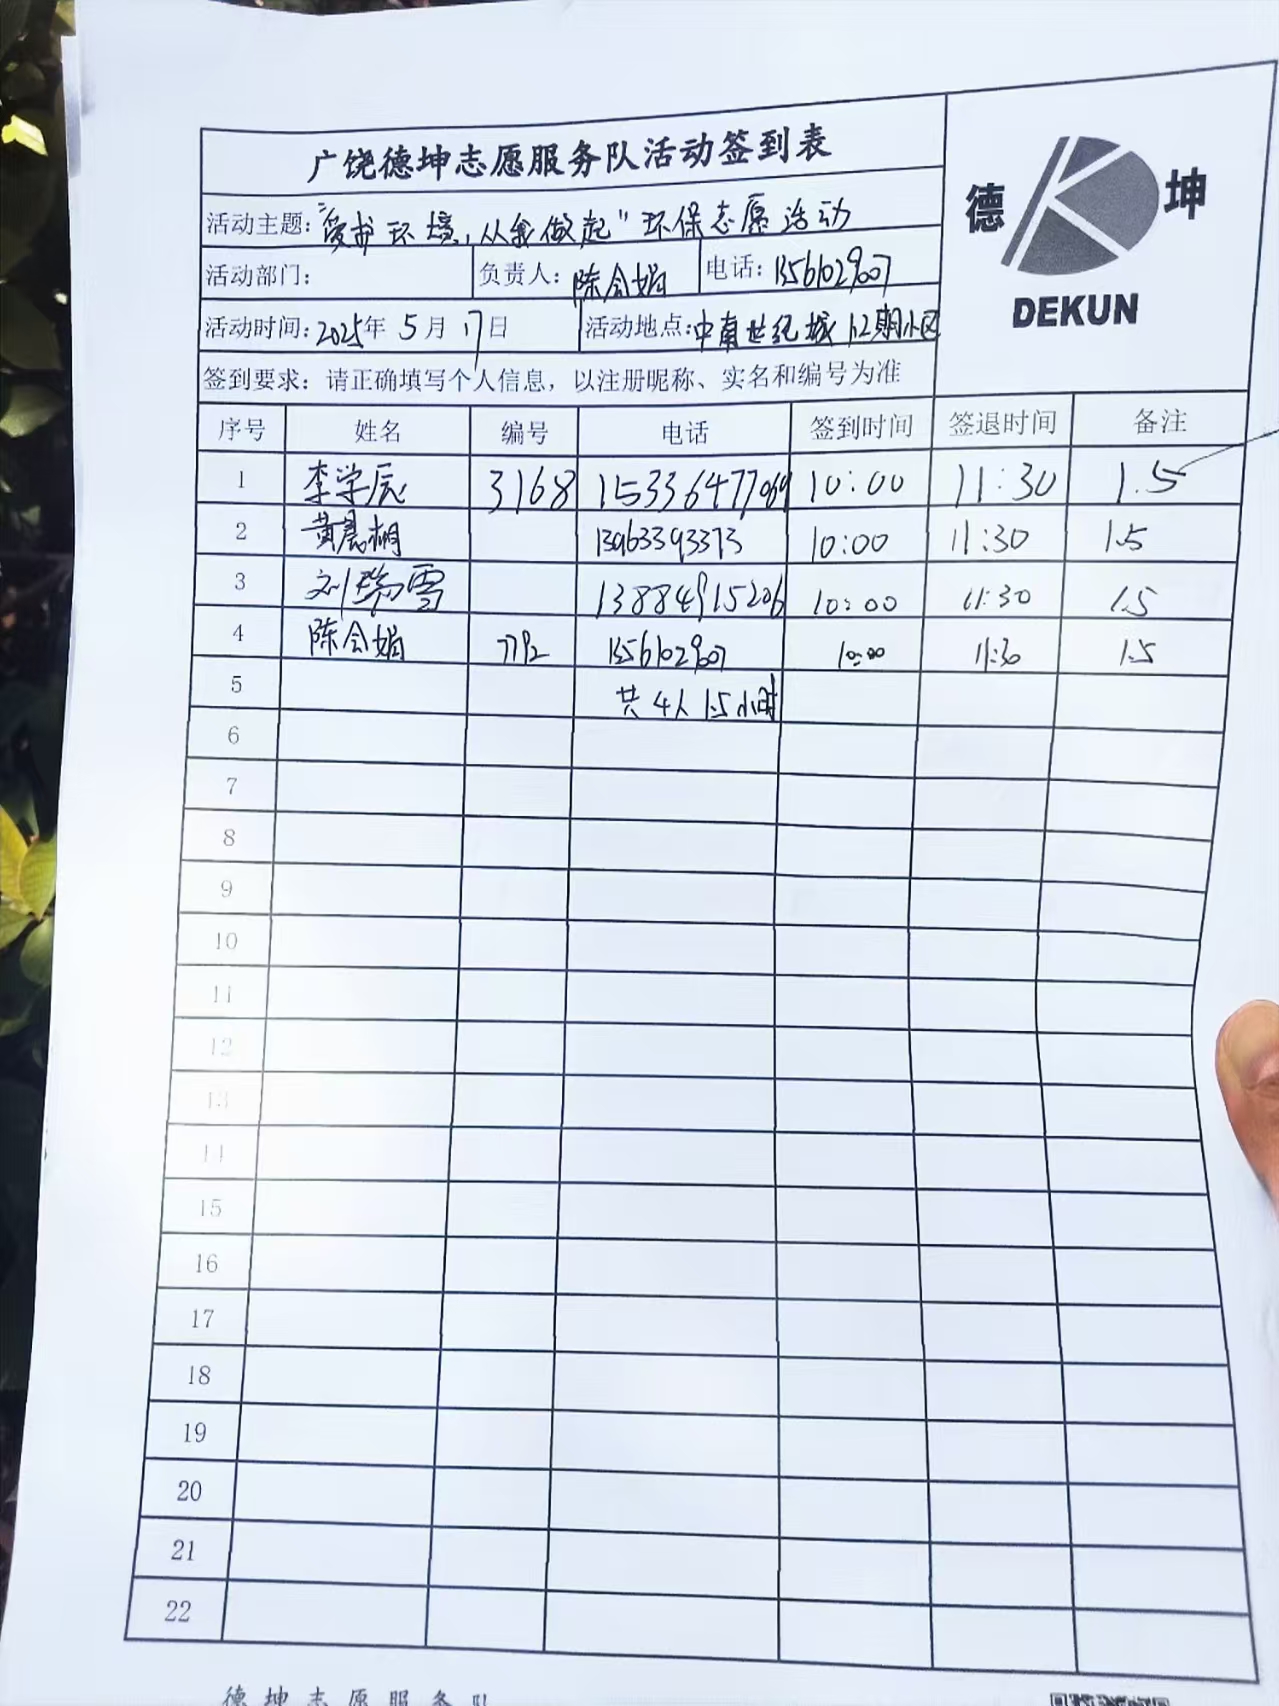 广饶德坤志愿服务队活动签到表
德 坤
DEKUN
活动主题：“爱护环境，从我做起”环保志愿活动
活动部门： 负责人：陈会娟 电话：13561029007
活动时间：2025年5月17日 活动地点：中南世纪城12期小区
签到要求：请正确填写个人信息，以注册昵称、实名和编号为准
序号 姓名 编号 电话 签到时间 签退时间 备注
1 李学辰 3168 15336477069 10:00 11:30 1.5
2 黄晨栩 13963393373 10:00 11:30 1.5
3 刘瑞雪 13884915206 10:00 11:30 1.5
4 陈会娟 7792 13561029007 10:00 11:30 1.5
5 共4人 1.5小时
6
7
8
9
10
11
12
13
14
15
16
17
18
19
20
21
22
德坤志愿服务队